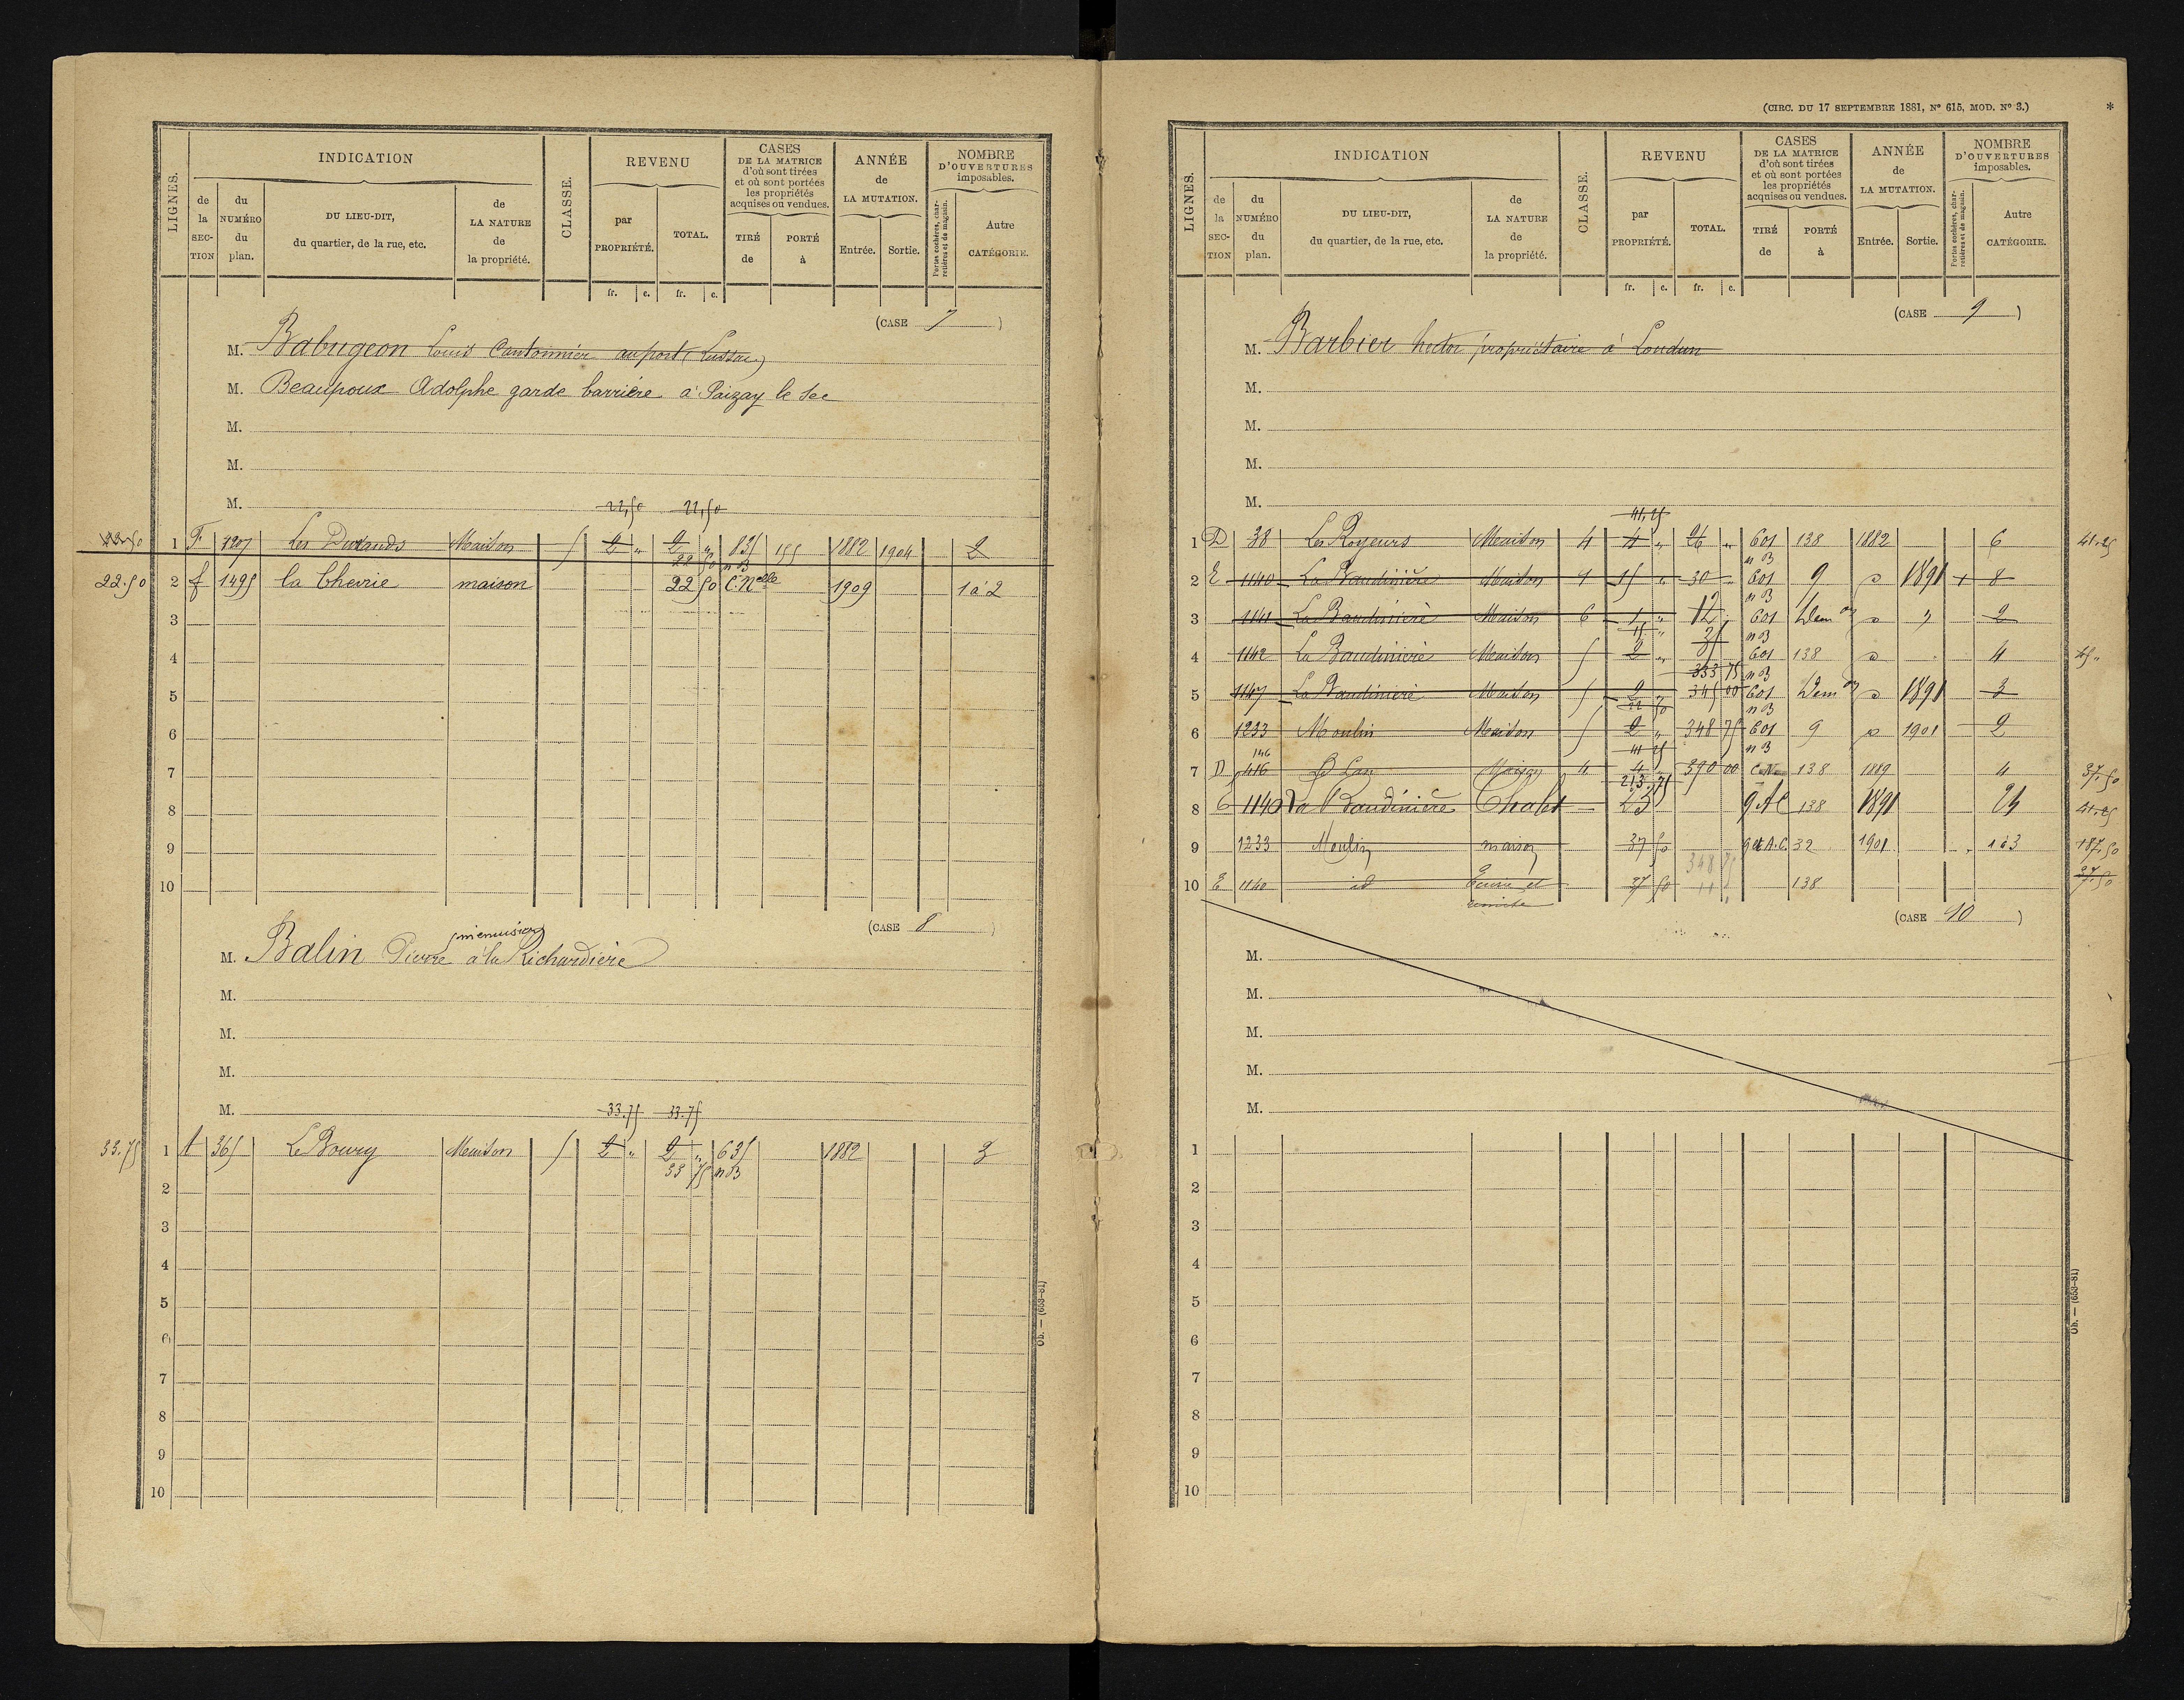 LIGNES.
INDICATION
de la SECTION
du NUMÉRO du plan.
DU LIEU-DIT, du quartier, de la rue, etc.
de LA NATURE de la propriété.
CLASSE.
REVENU
par PROPRIÉTÉ.
TOTAL.
CASES DE LA MATRICE d'où sont tirées et où sont portées les propriétés acquises ou vendues.
TIRÉ de
PORTÉ à
ANNÉE de LA MUTATION.
Entrée.
Sortie.
NOMBRE D'OUVERTURES imposables.
Portes cochères, charretières et de magasin.
Autre CATÉGORIE.
fr. c. fr. c.
(CASE 7)
M. Babugeon Louis Cantonnier au port (Lussac)
M. Beaupoux Adolphe garde barrière à Paizay le Sec
M.
M.
M.
22,50 22,50
22.50 1 F 1207 Les Durands Maison 5 2 „ 2 „ 835 155 1882 1904 2
22 50 n B
22.50 2 f 1495 la Chevrie maison 22 50 C. Nelle 1909 1 à 2
3
4
5
6
7
8
9
10
(CASE 8)
menuisier
M. Balin Pierre à la Richardière
M.
M.
M.
M.
33.75 33.75
33.75 1 A 365 Le Bourg Maison 5 2 „ 2 „ 635 1882 3
33 75 n B
2
3
4
5
6
7
8
9
10
Ob. — (653-81)
(CIRC. DU 17 SEPTEMBRE 1881, N° 615, MOD. N° 3.)
*
LIGNES.
INDICATION
de la SECTION
du NUMÉRO du plan.
DU LIEU-DIT, du quartier, de la rue, etc.
de LA NATURE de la propriété.
CLASSE.
REVENU
par PROPRIÉTÉ.
TOTAL.
CASES DE LA MATRICE d'où sont tirées et où sont portées les propriétés acquises ou vendues.
TIRÉ de
PORTÉ à
ANNÉE de LA MUTATION.
Entrée.
Sortie.
NOMBRE D'OUVERTURES imposables.
Portes cochères, charretières et de magasin.
Autre CATÉGORIE.
fr. c. fr. c.
(CASE 9)
M. Barbier hector propriétaire à Loudun
M.
M.
M.
M.
41,25
1 D 38 Les Royeurs Maison 4 4 „ 26 „ 601 138 1882 6 41.25
n B
2 E 1140 La Baudinière Maison 4 15 „ 30 601 9 1891 + 8
n B
3 1141 La Baudinière Maison 6 1 „ 12 601 Dem on „ 2
15 „ 25 n B
4 1142 La Baudinière Maison 5 2 „ 601 138 4
333 75 n B
5 1147 La Baudinière Maison 5 2 345 00 601 Dem on 1891 3
22 50 n B
6 1233 Moulin Maison 5 2 „ 348 75 601 9 1901 2
146 41 25 n B
7 D 416 Maison 4 4 390 00 138 1889 4 37,50
213.75
8 E 1140 La Baudinière Chalet 23 138 1891 41.25
9 1233 Moulin maison 37 50 32 1901 1 à 3 187,50
348 75
10 E 1140 id Ecurie et 37 50 138 37.50
remise
(CASE 10)
M.
M.
M.
M.
M.
1
2
3
4
5
6
7
8
9
10
Ob. — (653-81)